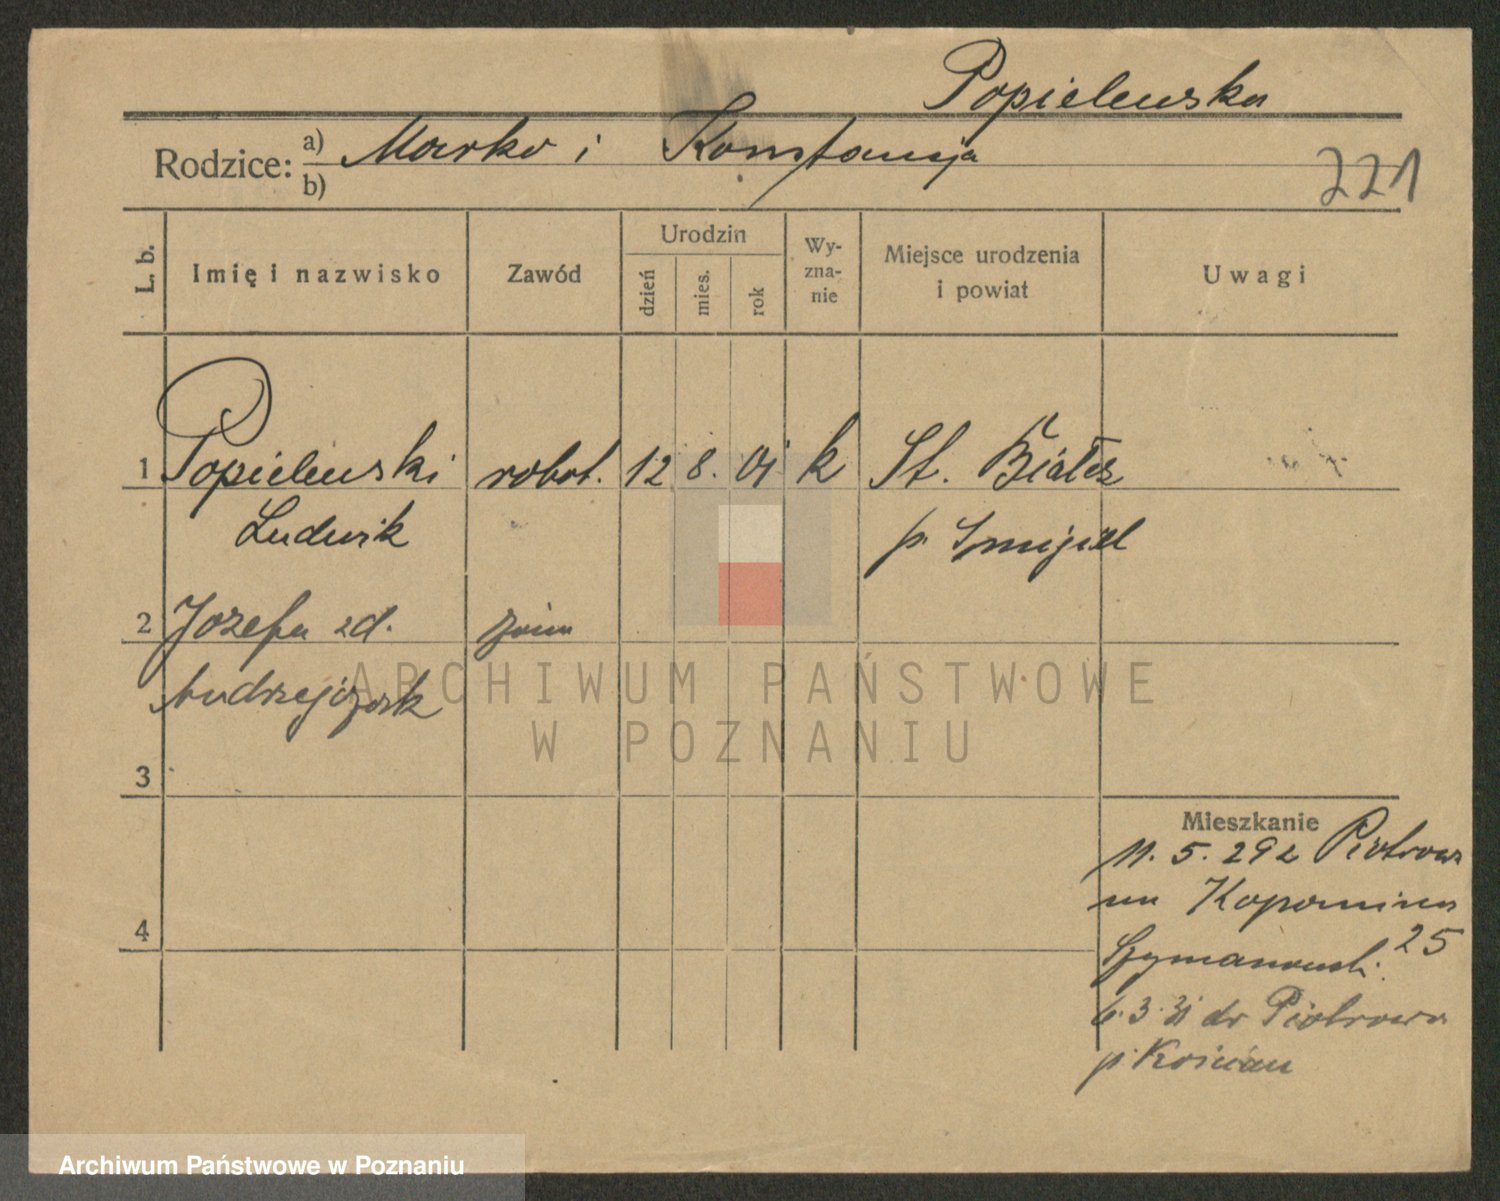 Popielewska
Rodzice: a) Marko i Konstancja
b)
221
L. b.
Imię i nazwisko
Zawód
Urodzin
dzień
mies.
rok
Wy-
zna-
nie
Miejsce urodzenia
i powiat
Uwagi
1 Popielewski robot. 12 8. 01 k St. Białcz
Ludwik p. Śmigiel
2 Józefa zd. żona
Andrzejczak
3
4
Mieszkanie
11. 5. 29 z Piotrowa
na Kopanina
25
Szymanowski.
6. 3. 31 do Piotrowa
p. Kościan
ARCHIWUM PAŃSTWOWE
W POZNANIU
Archiwum Państwowe w Poznaniu